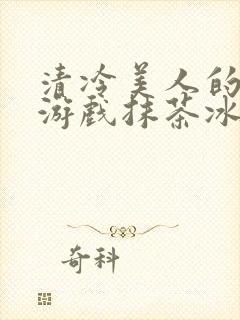 清冷美人的
游戏抹茶冰
奇科